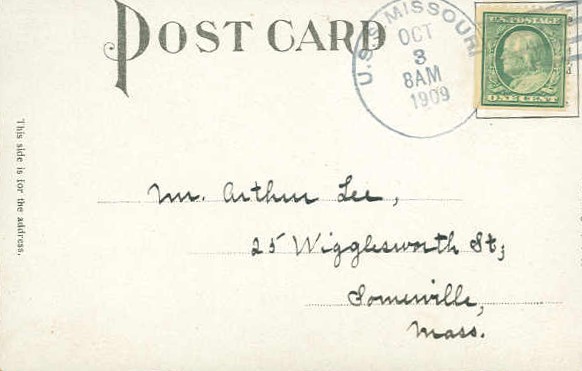 POST CARD
U.S.S. MISSOURI
OCT
3
8AM
1909
U.S. POSTAGE
ONE CENT
This side is for the address.
Mr. Arthur Lee,
25 Wigglesworth St;
Somerville,
Mass.